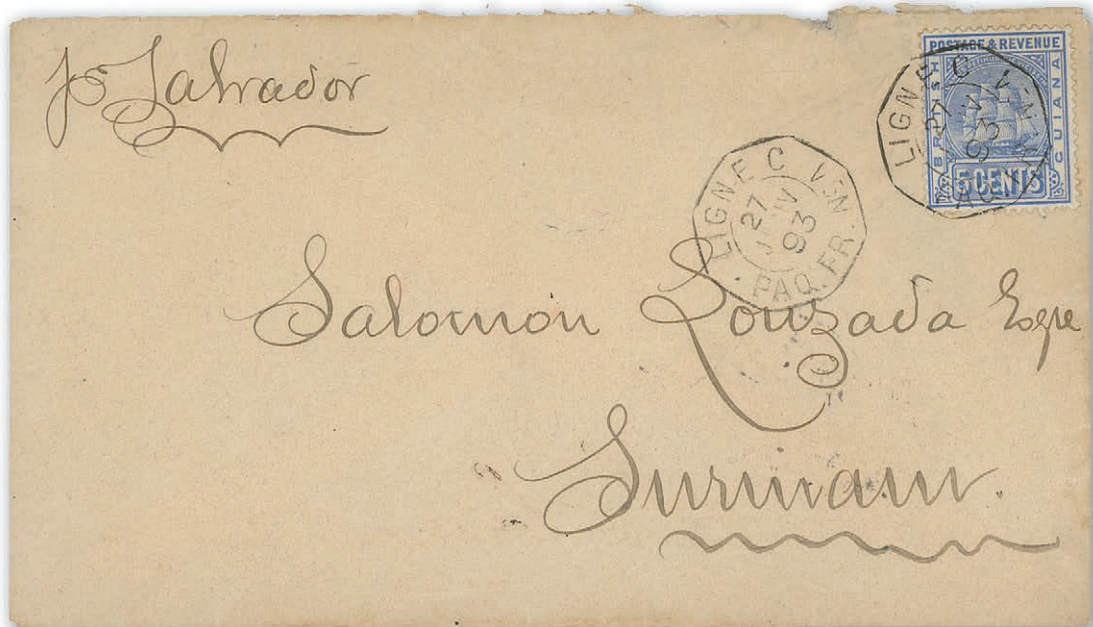 ps Salvador
POSTAGE & REVENUE
BRITISH
GUIANA
5 CENTS
LIGNE C
27
93
PAQ.
LIGNE C
27
JANV
93
PAQ. FR.
Salomon Louzada Esqre
Surinam.